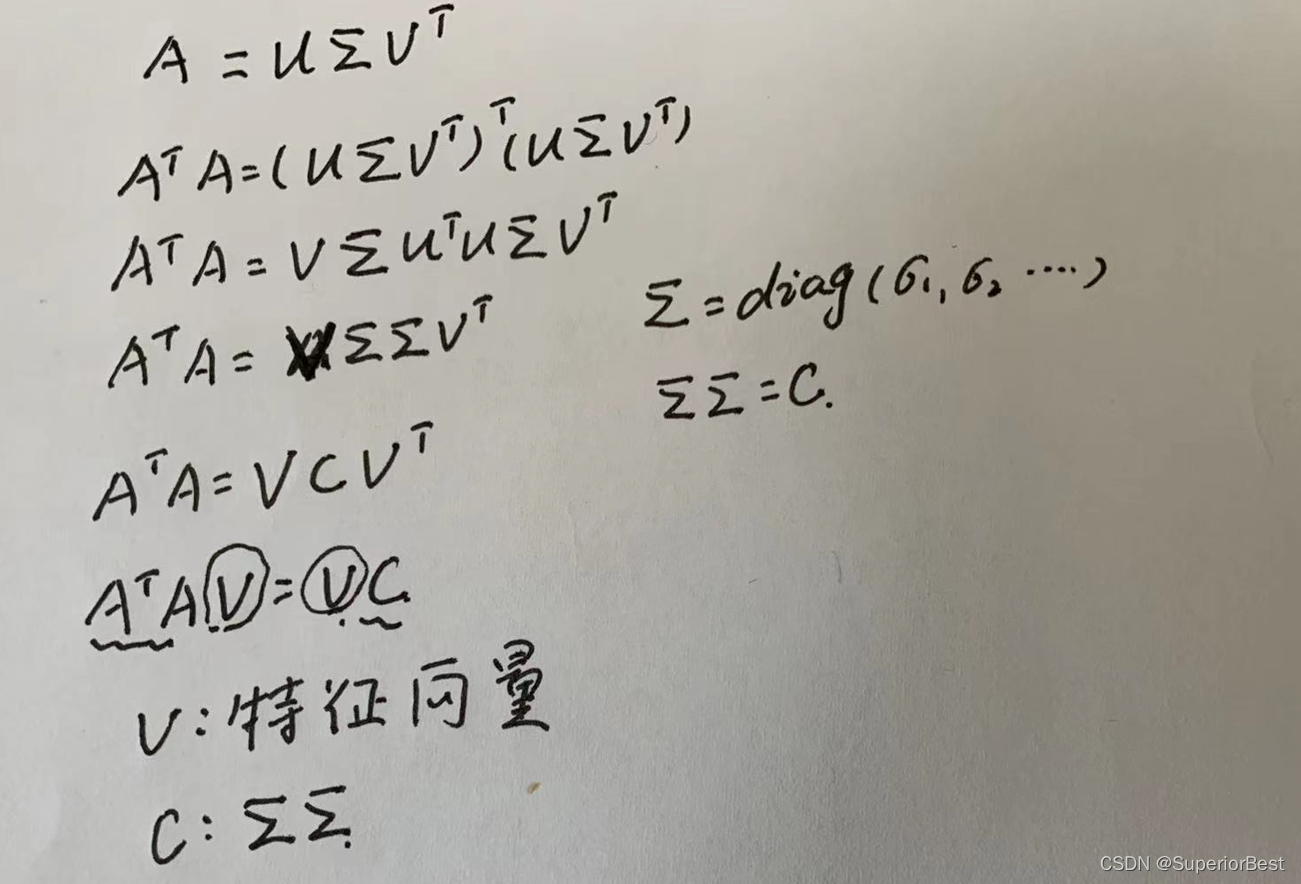 A = UΣVᵀ
AᵀA=(UΣVᵀ)ᵀ(UΣVᵀ)
AᵀA=VΣUᵀUΣVᵀ
AᵀA= VΣΣVᵀ
Σ=diag(σ₁, σ₂ ····)
ΣΣ=C.
AᵀA=VCVᵀ
AᵀAV=VC
V:特征向量
C:ΣΣ.
CSDN @SuperiorBest